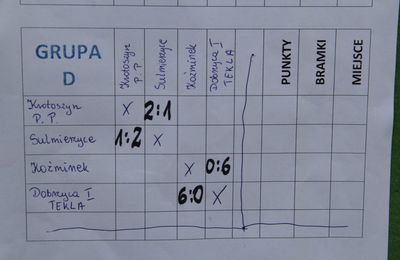 GRUPA D Krotoszyn P.P. Sulmierzyce Koźminek Dobrzyca I TEKLA PUNKTY BRAMKI MIEJSCE
Krotoszyn P.P. X 2:1
Sulmierzyce 1:2 X
Koźminek X 0:6
Dobrzyca I TEKLA 6:0 X